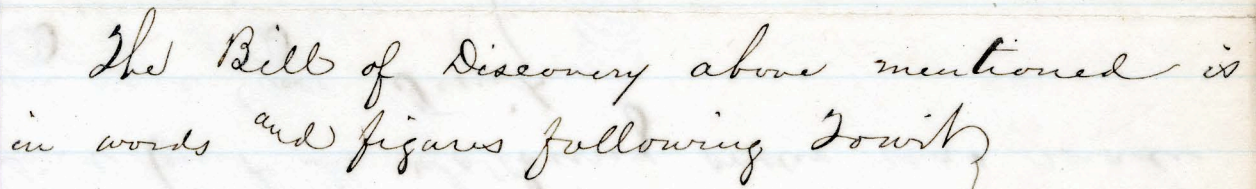 The Bill of Discovery above mentioned is
in words and figures following Towit,